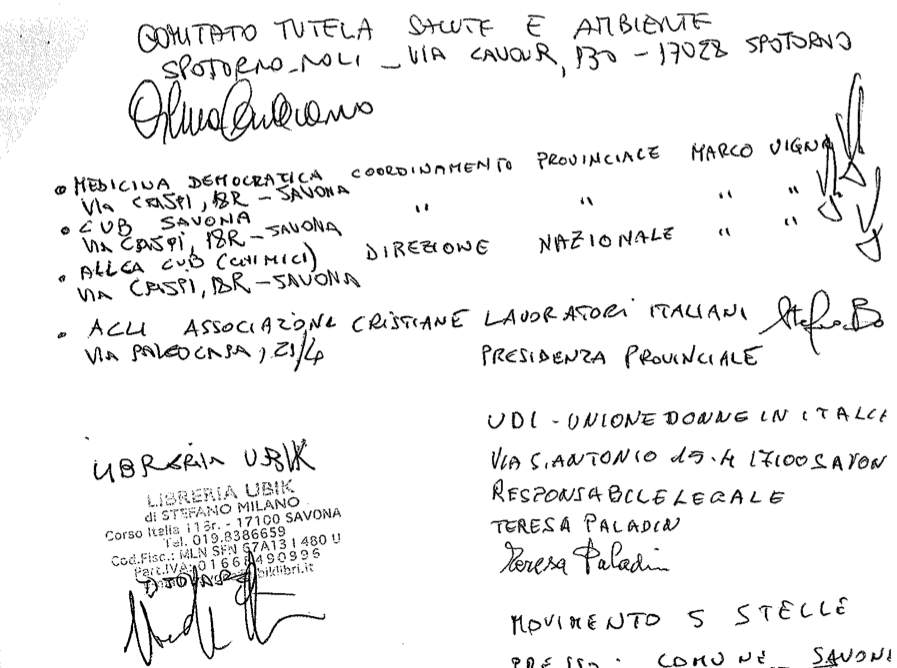 COMITATO TUTELA SALUTE E AMBIENTE
SPOTORNO-NOLI - VIA CAVOUR, 130 - 17028 SPOTORNO
• MEDICINA DEMOCRATICA COORDINAMENTO PROVINCIALE MARCO VIGNA
VIA CRISPI, 18R - SAVONA
• CUB SAVONA " " " "
VIA CRISPI, 18R - SAVONA
• ALLCA CUB (CHIMICI) DIREZIONE NAZIONALE " "
VIA CRISPI, 18R - SAVONA
• ACLI ASSOCIAZIONI CRISTIANE LAVORATORI ITALIANI
VIA PALEOCAPA, 21/4 PRESIDENZA PROVINCIALE
UDI - UNIONE DONNE IN ITALIA
VIA S. ANTONIO 17100 SAVON
RESPONSABILE LEGALE
TERESA PALADIN
Teresa Paladin
LIBRERIA UBIK
LIBRERIA UBIK
di STEFANO MILANO
Corso Italia 116r. - 17100 SAVONA
Tel. 019.8386659
Cod.Fisc.: MLN SFN 67A13 I 480 U
Part.IVA:
MOVIMENTO 5 STELLE
PRESSO: COMUNE SAVONA